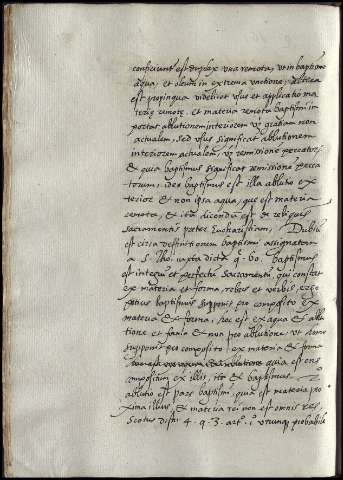 conficiunt est duplex una remota, ut in baptismo
aqua, et oleum in extrema unctione; altera
est propinqua videlicet usus et applicatio ma
teriæ remotæ, et materia remota baptismi im
portat ablutionem interiorem ut gratiam non
actualem, sed usus significat ablutionem
interiorem actualem, ut remissionem peccatorũ
& quia baptismus significat remissionem pecca
torum, ideo baptismus est illa ablutio ex
terior & non ipsa aqua, quæ est materia
remota, & ita dicendũ est de reliquis
sacramentis præter Eucharistiam. Dubiũ
est circa definitionem baptismi assignatam
a S. Tho. iuxta dicta q. 60. baptismus
est integrũ et perfectũ sacramentũ qui constat
ex materia et forma, rebus et verbis, ergo
potius baptismus supponit pro composito ex
materia & forma, hoc est ex aqua & ablu
tione et forma & non pro ablutione, ut homo
supponit pro composito ex materia & forma
quia est ens
compositum ex illis, ita & baptismus. 2.º
ablutio est pars baptismi, quia est materia pro
xima illius, & materia rei non est omnis res,
Scotus dist. 4. q. 3. art. i. utrunque probabile